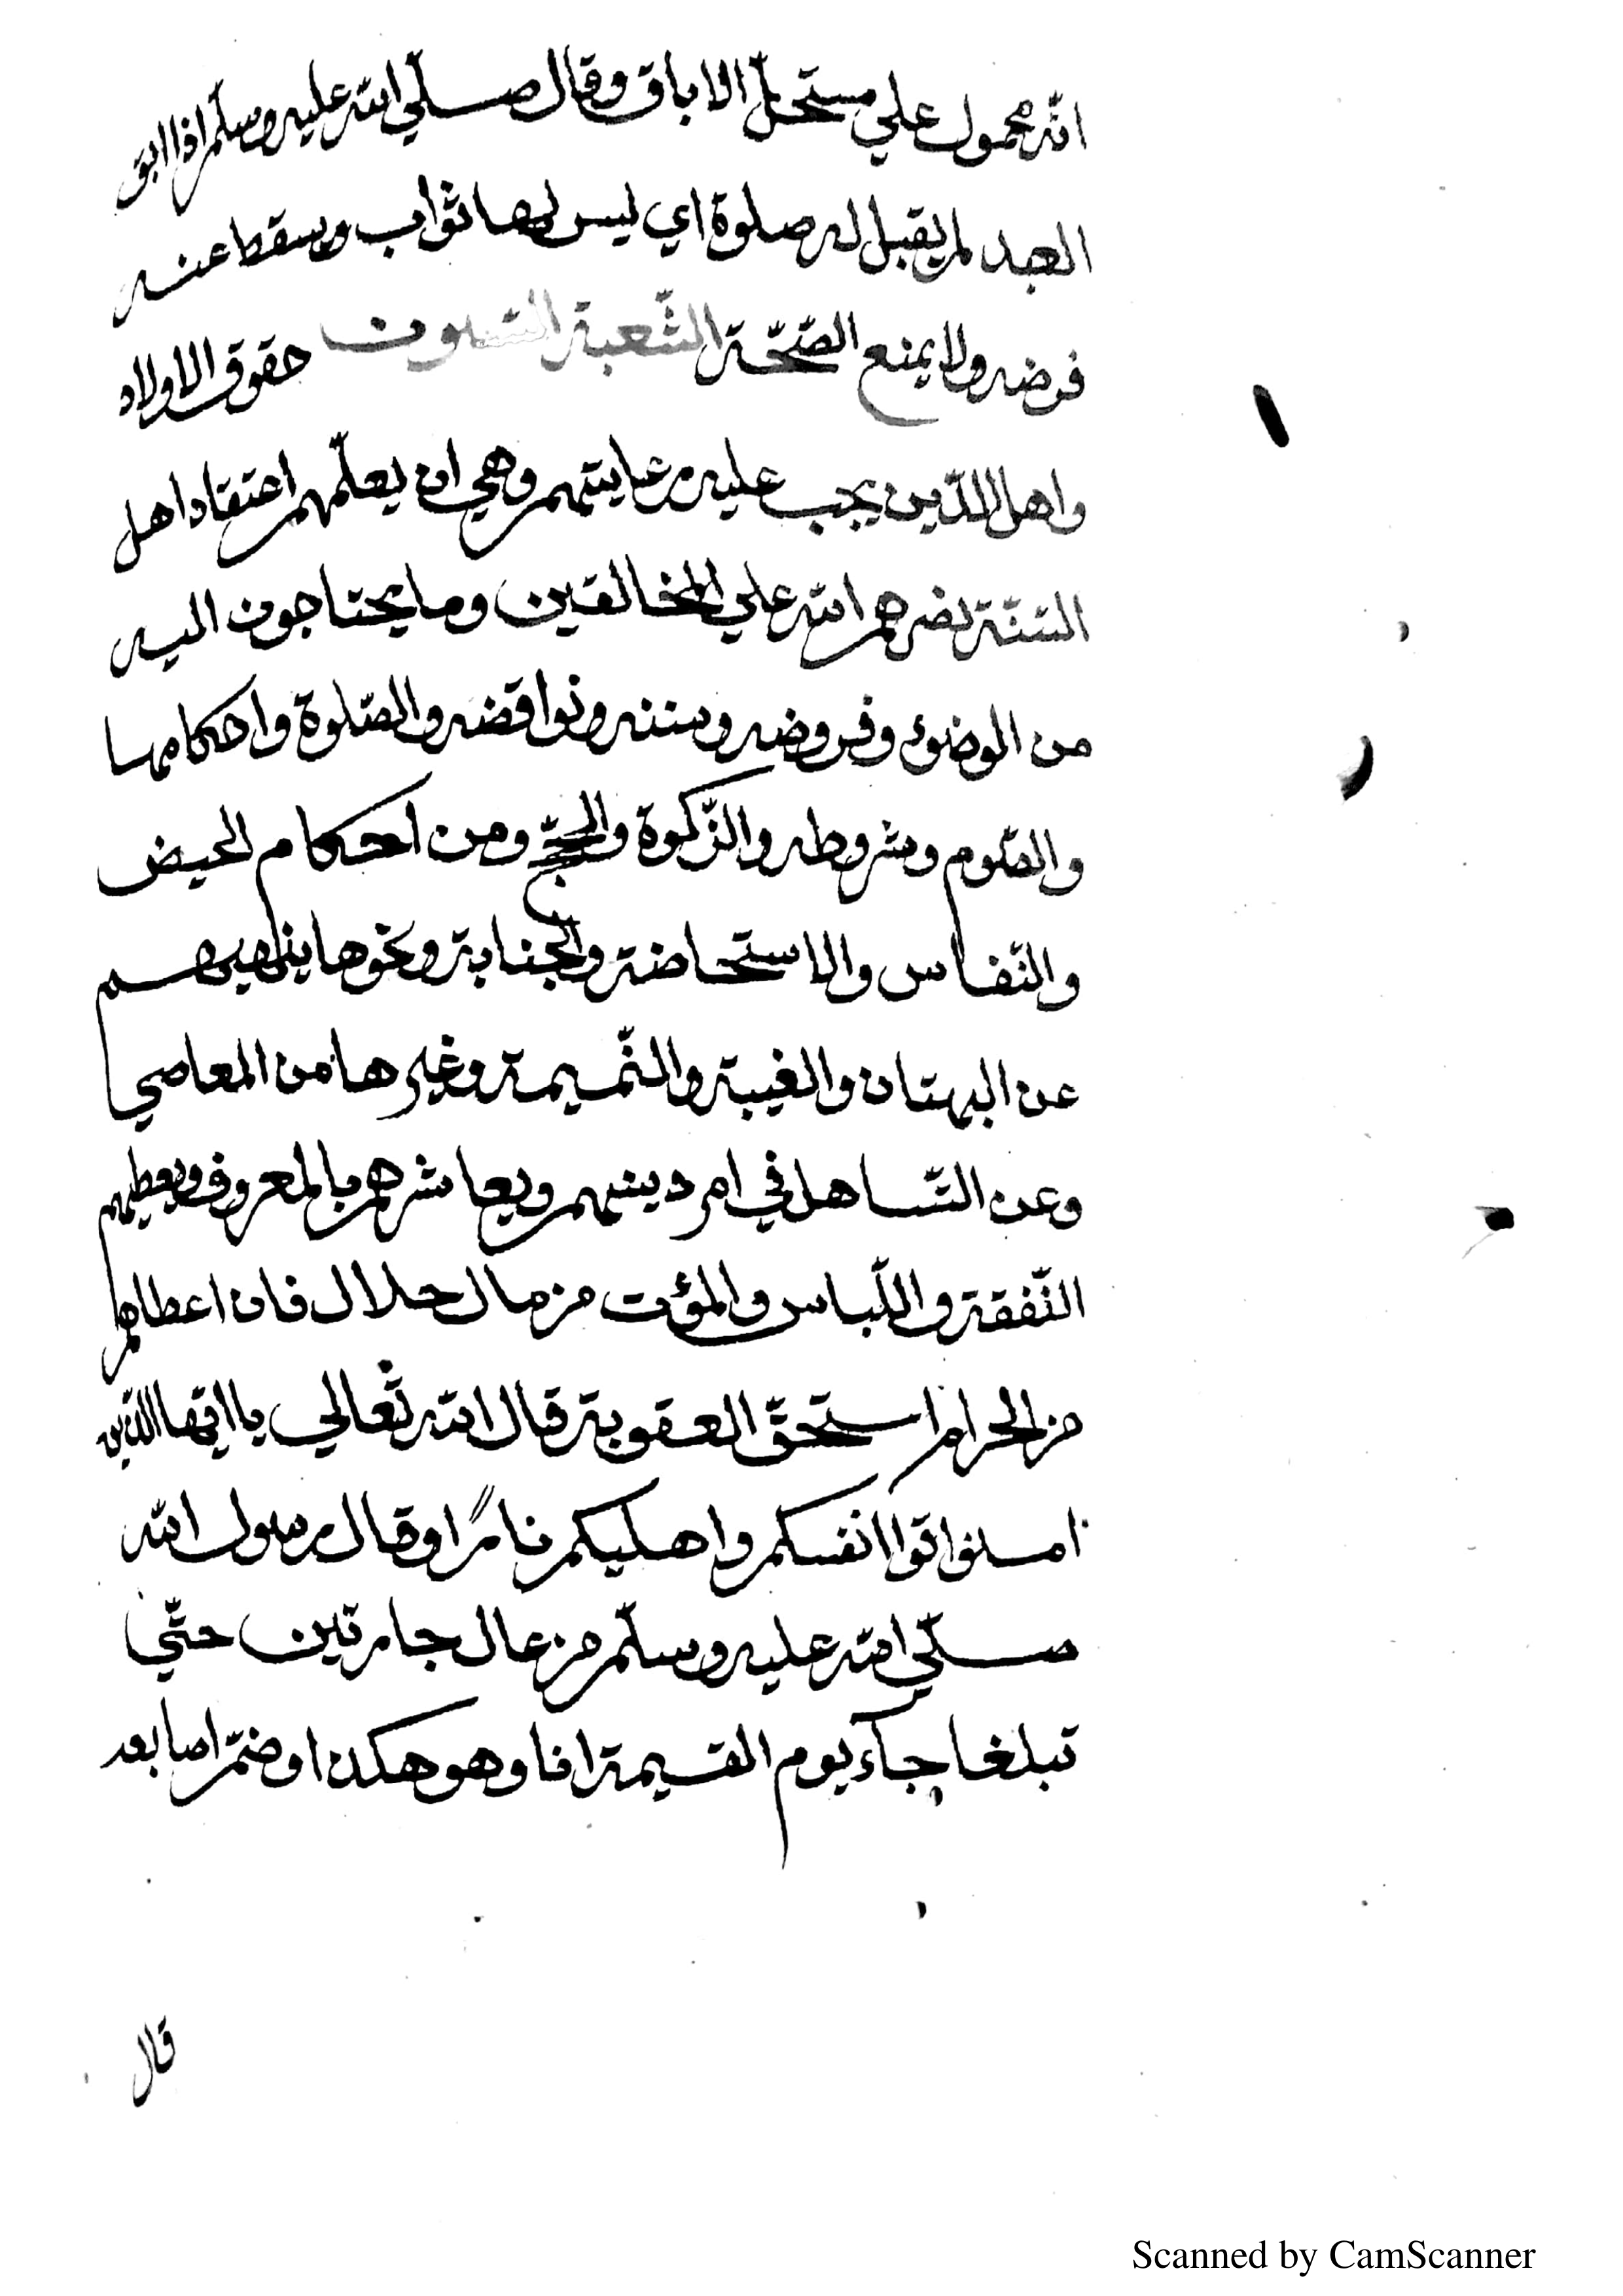 انّه محمول علي مستحلّ الاباق وقال صلّي الله عليه وسلّم اذا ابق
العبد لم يقبل له صلوة اي ليس لها ثواب وسقط عنه
فرضه ولا يمنع الصّحّة الشّعبة السّتون حقوق الاولاد
واهل الّذين يجب عليه رعايتهم وهي ان يعلّمهم اعتقاد اهل
السّنّة نصرهم الله علي المخالفين وما يحتاجون اليه
من الوضوء وفروضه وسننه ونواقضه والصّلوة واحكامها
والصّوم وشروطه والزّكوة والحجّ ومن احكام الحيض
والنّفاس والاستحاضة والجنابة ونحوها ينهيهم
عن البهتان والغيبة والنّميمة وغيرها من المعاصي
وعن التّساهل في امر دينهم ويعاشرهم بالمعروف ويعطيهم
النّفقة واللّباس والمؤنت من مال حلال فان اعطاهم
من الحرام استحقّ العقوبة قال الله تعالي يا ايّها الّذين
امنوا قوا انفسكم واهليكم نارًا وقال رسول الله
صلّي الله عليه وسلّم من عال جارتين حتّي
تبلغا جآء يوم القيمة انا وهو هكذا وضمّ اصابعه
قال
Scanned by CamScanner